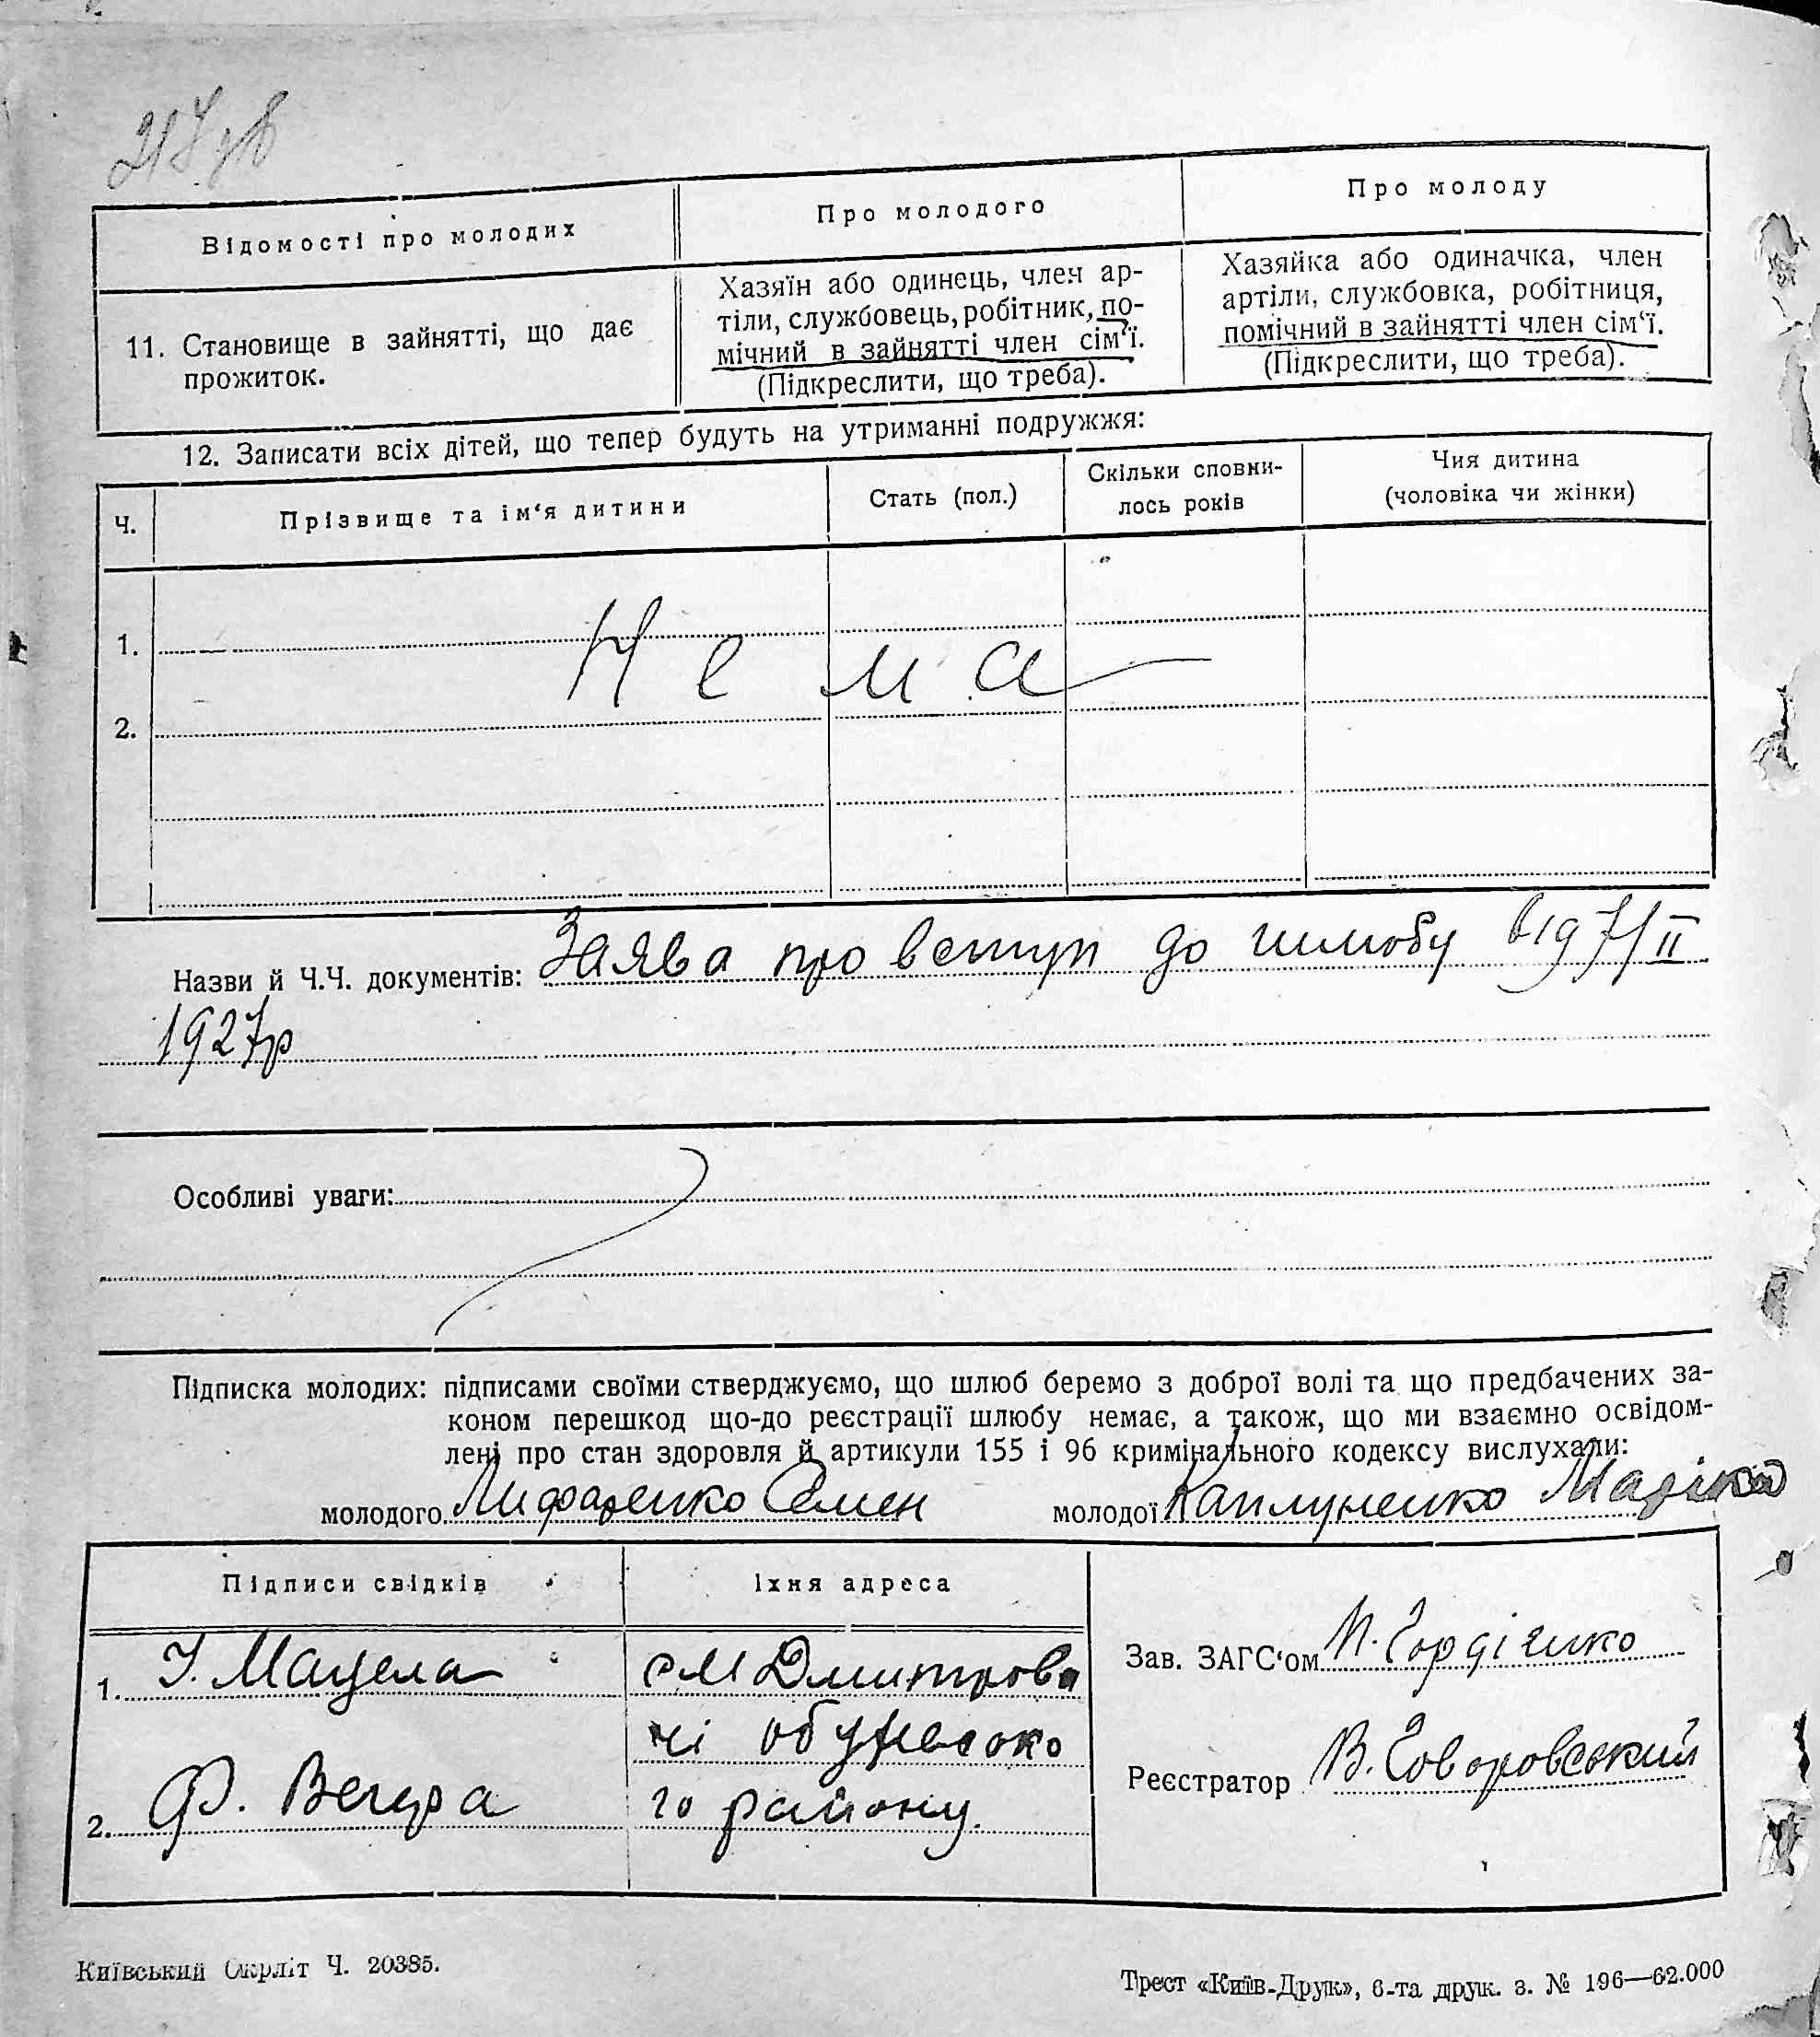 217 зв
Відомості про молодих
Про молодого
Про молоду
11. Становище в зайнятті, що дає
прожиток.
Хазяїн або одинець, член ар-
тіли, службовець, робітник, по-
мічний в зайнятті член сім‘ї.
(Підкреслити, що треба).
Хазяйка або одиначка, член
артіли, службовка, робітниця,
помічний в зайнятті член сім‘ї.
(Підкреслити, що треба).
12. Записати всіх дітей, що тепер будуть на утриманні подружжя:
Ч.
Прізвище та ім‘я дитини
Стать (пол.)
Скільки сповни-
лось років
Чия дитина
(чоловіка чи жінки)
1.
Нема
2.
Назви й Ч.Ч. документів: Заява про вступ до шлюбу від 7/II
1927р
Особливі уваги:
Підписка молодих: підписами своїми стверджуємо, що шлюб беремо з доброї волі та що предбачених за-
коном перешкод що-до реєстрації шлюбу немає, а також, що ми взаємно освідом-
лені про стан здоровля й артикули 155 і 96 кримінального кодексу вислухали:
молодого Лифаренко Семен молодої Каплуненко Марія
Підписи свідків
Їхня адреса
1. І. Мацела
с М Дмитрова
чі обухівсько
2. Ф. Вечера
го району.
Зав. ЗАГС‘ом Гордієнко
Реєстратор В. Говоровський
Київський Окрліт Ч. 20385.
Трест «Київ-Друк», 6-та друк. з. № 196—62.000